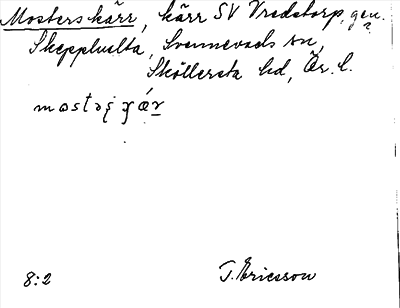 Mosterskärr, kärr SV Vredstorp, gen.
Skepphulta, Svennevads sn,
Sköllersta hd, Ör. l.
8:2 T. Ericsson